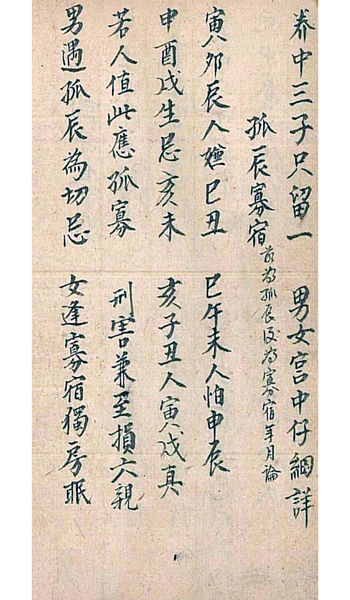 养中三子只留一　男女宫中仔細詳
孤辰寡宿 前為孤辰後為寡宿年月論
寅卯辰人嫌巳丑　巳午未人怕申辰
申酉戌生忌亥未　亥子丑人寅戌真
若人值此應孤寡　刑害兼至損六親
男遇孤辰為切忌　女逢寡宿獨房眠